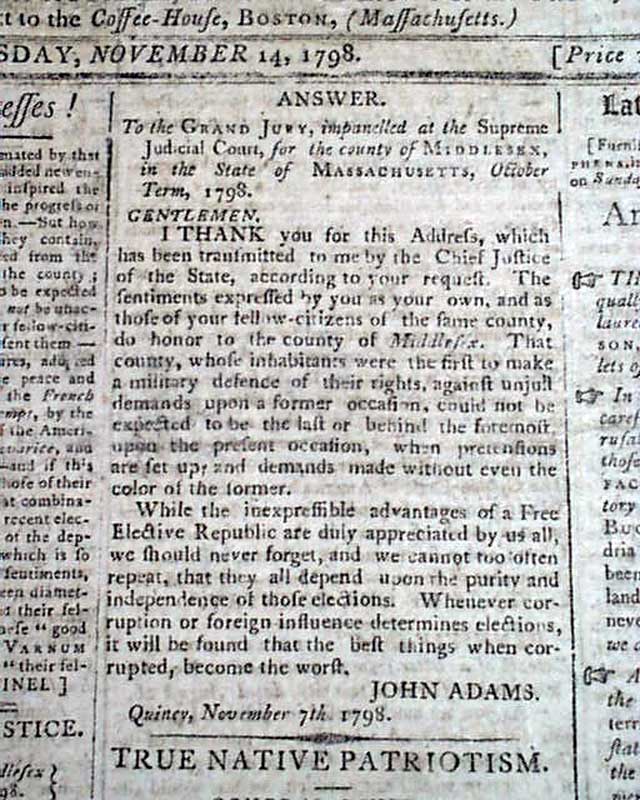 t to the Coffee-Houſe, BOSTON, (Maſſachuſetts.)
SDAY, NOVEMBER 14, 1798.
[Price
eſſes !
mated by that
inſpired the
he progreſs of
n.—But how
hey contain,
ed from the
the county ;
o be expected
r fellow-citi-
ſent them —
e peace and
the French
, by the
f the Ameri-
avarice, and
—and if this
hoſe of their
at combina-
recent elec-
of the dep-
which is ſo
ſentiments,
een diamet-
d their fel-
" good
VARNUM
" their fel-
INEL ]
STICE.
dleſex }
98. }
ANSWER.
To the GRAND JURY, impanelled at the Supreme
Judicial Court, for the county of MIDDLESEX,
in the State of MASSACHUSETTS, October
Term, 1798.
GENTLEMEN.
I THANK you for this Addreſs, which
has been tranſmitted to me by the Chief Juſtice
of the State, according to your requeſt. The
ſentiments expreſſed by you as your own, and as
thoſe of your fellow-citizens of the ſame county,
do honor to the county of Middleſex. That
county, whoſe inhabitants were the firſt to make
a military defence of their rights, againſt unjuſt
demands upon a former occaſion, could not be
expected to be the laſt or behind the foremoſt,
upon the preſent occaſion, when pretenſions
are ſet up, and demands made without even the
color of the former.
While the inexpreſſible advantages of a Free
Elective Republic are duly appreciated by us all,
we ſhould never forget, and we cannot too often
repeat, that they all depend upon the purity and
independence of thoſe elections. Whenever cor-
ruption or foreign influence determines elections,
it will be found that the beſt things when cor-
rupted, become the worſt.
JOHN ADAMS.
Quincy, November 7th. 1798.
TRUE NATIVE PATRIOTISM.
Lat
[Furni
on Sunda
An
TH
quali
laure
SON,
lets of
In
caref
ruſa
thoſe
FAC
tory
BUC
dria
been
land
neve
we a
A
the
terri
ſtat
the